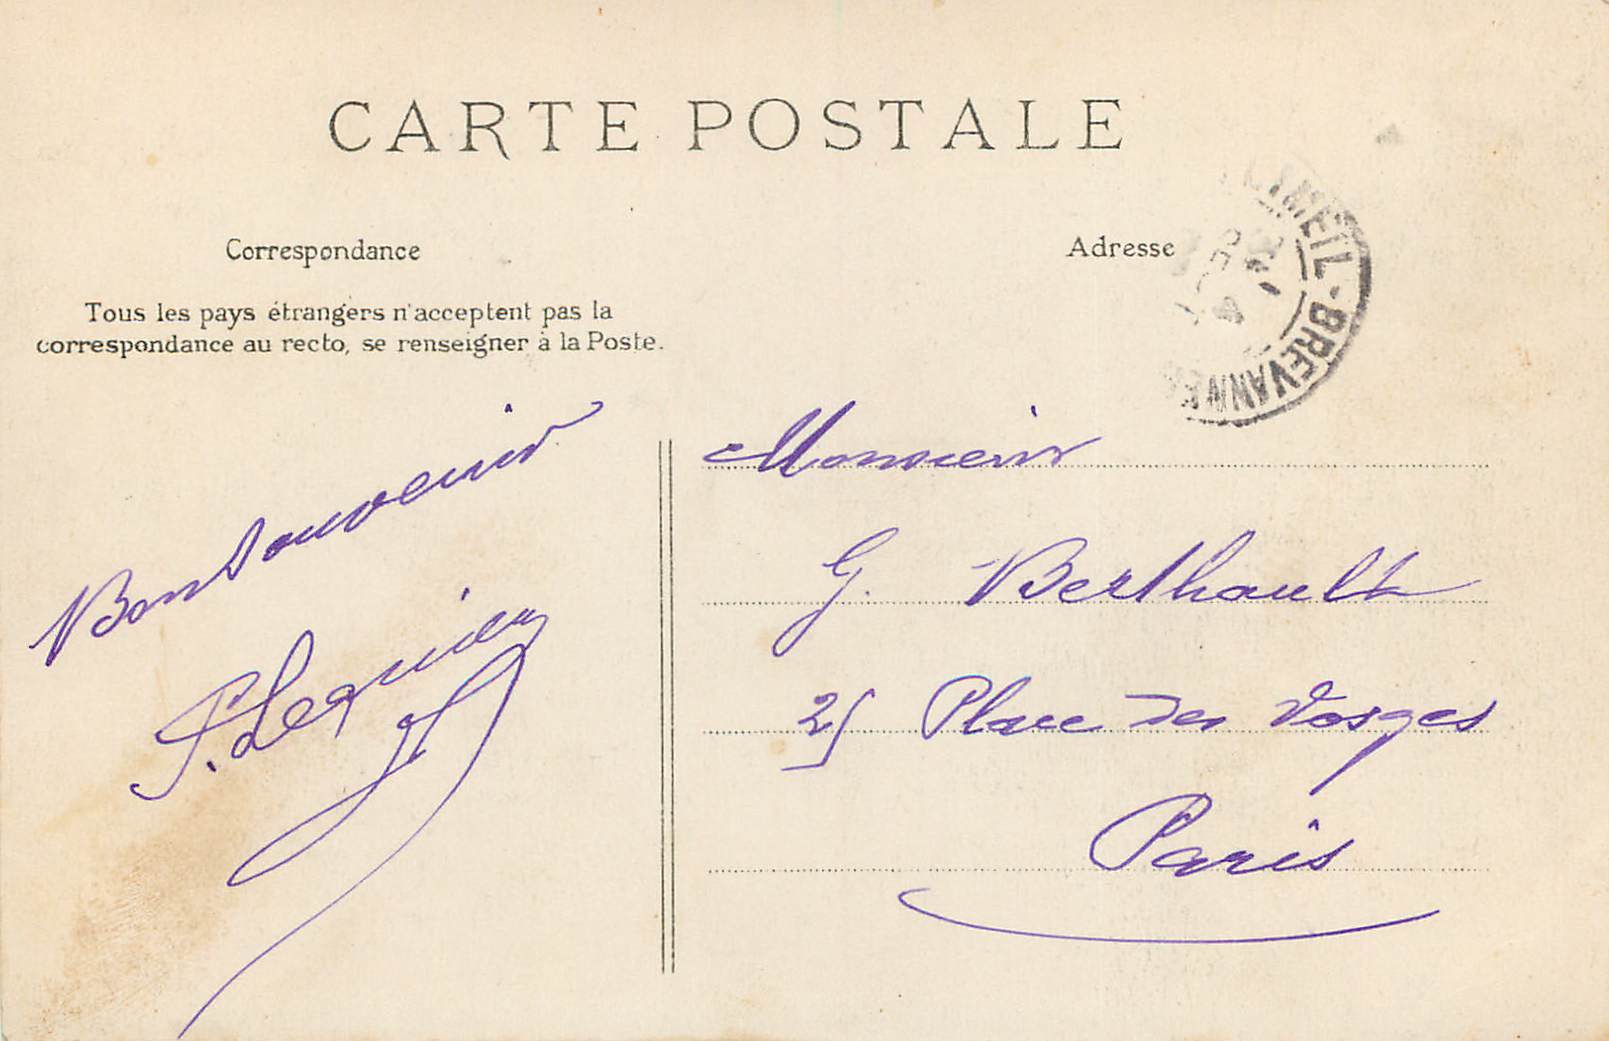 CARTE POSTALE
Correspondance
Tous les pays étrangers n'acceptent pas la
correspondance au recto, se renseigner à la Poste.
Adresse
LIMEIL-BREVANNES
Bon Souvenir
Monsieur
G. Berthault
25 Place des Vosges
Paris